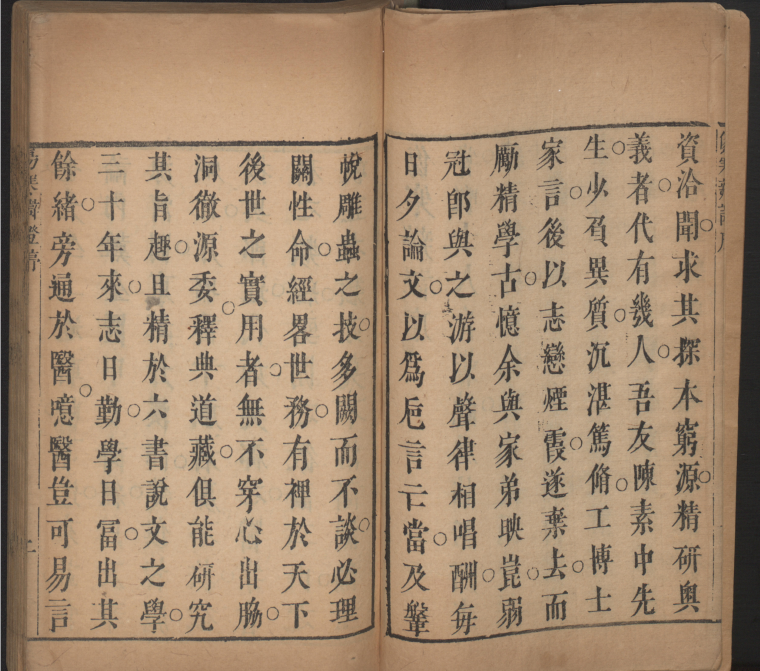 資洽聞求其探本窮源精研奥
義者代有幾人吾友陳素中先
生少負異質沉湛篤脩工博士
家言後以志戀煙霞遂棄去而
勵精學古憶余與家弟映崑弱
冠卽與之游以聲律相唱酬每
日夕論文以爲巵言亡當及鞶
帨雕蟲之技多闕而不談必理
關性命經畧世務有裨於天下
後世之實用者無不穿心出脇
洞徹源委釋典道藏俱能研究
其旨趣且精於六書說文之學
三十年來志日勤學日富出其
餘緒旁通於醫噫醫豈可易言